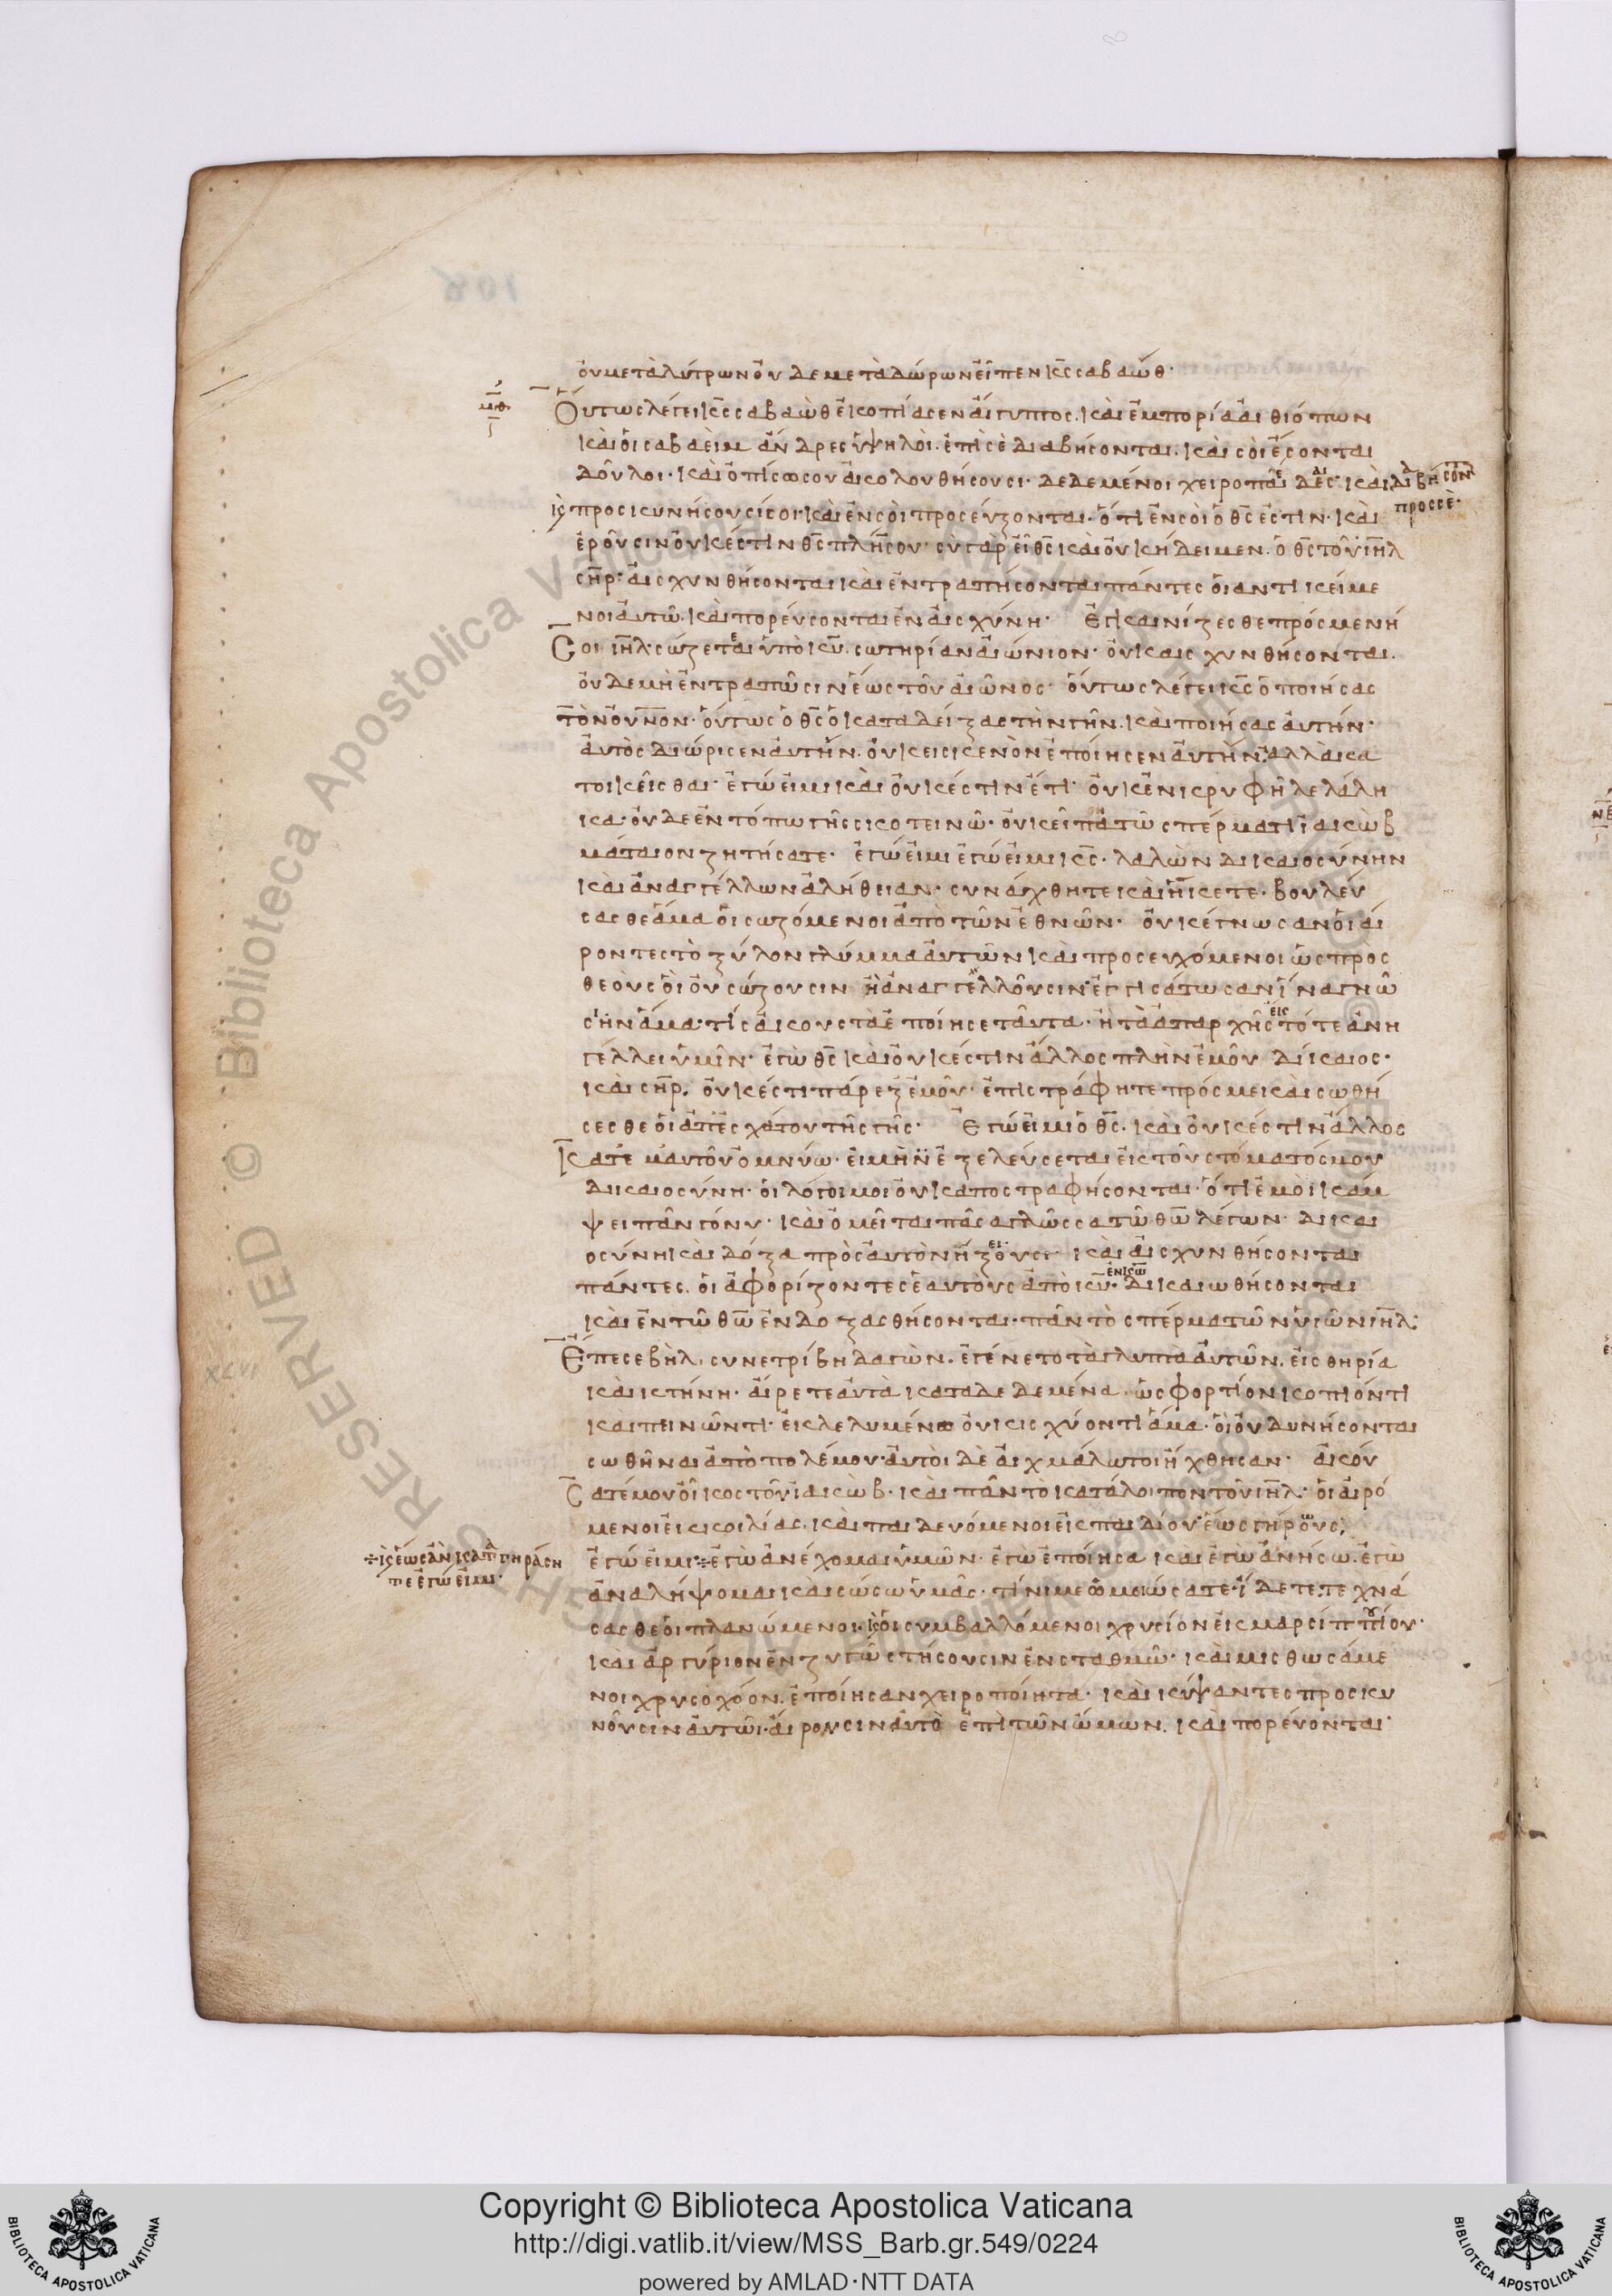 οὐ μετὰ λύτρων οὐδὲ μετὰ δώρων εἶπεν κ̅ς̅ σαβαώθ·
μθ
Οὕτως λέγει κ̅ς̅ σαβαὼθ ἐκοπίασεν αἴγυπτος· καὶ ἐμπορία αἰθιόπων
καὶ οἱ σαβαεὶμ ἄνδρες ὑψηλοὶ· ἐπὶ σὲ διαβήσονται· καὶ σοὶ ἔσονται
δοῦλοι· καὶ ὀπίσω σου ἀκολουθήσουσι· δεδεμένοι χειροπέδαις· καὶ διαβήσοντ
πρὸς σὲ·
κ προσκυνήσουσί σοι· καὶ ἐν σοὶ προσεύξονται· ὅτι ἐν σοὶ ὁ θ̅ς̅ ἐστιν· καὶ
ἐροῦσιν οὐκ ἔστιν θ̅ς̅ πλὴν σου· σὺ γὰρ εἶ θ̅ς̅ καὶ οὐκ ἤδειμεν· ὁ θ̅ς̅ τοῦ ι̅η̅λ̅
σ̅η̅ρ̅· αἰσχυνθήσονται καὶ ἐντραπήσονται πάντες οἱ αντικείμε
νοι αὐτῶ· καὶ πορεύσονται ἐν αἰσχύνη· Εγκαινίζεσθε πρός με νή
Σοι ι̅η̅λ̅ σώζεται ὑπὸ κ̅υ̅· σωτηρίαν αἰώνιον· οὐκ αισχυνθήσονται·
οὐδὲ μὴ ἐντραπῶσιν ἕως τοῦ αἰῶνος· οὕτως λέγει κ̅ς̅ ὁ ποιήσας
τὸν ο̅υ̅ν̅ο̅ν̅· οὕτως ὁ θ̅ς̅ ὁ καταδείξας τὴν γῆν· καὶ ποιήσας αὐτήν·
αὐτὸς διώρισεν αὐτήν· οὐκ εις κενὸν ἐποίησεν αὐτὴν· ἀλλὰ κα
τοικεῖσθαι· ἐγώ εἰμι καὶ οὐκ έστιν ἔτι· οὐκ ἐν κρυφῆ λελάλη
κα· οὐδὲ ἐν τόπω γῆς σκοτεινῶ· οὐκ εἶπα τῶ σπέρματι ϊακὼβ
μάταιον ζητήσατε· ἐγώ εἰμι ἐγώ εἰμι κ̅ς̅· λαλὼν δικαιοσύνην
καὶ ἀναγγέλλων ἀλήθειαν· συνάχθητε καὶ ἥκετε· βουλεύ
σασθε ἅμα οἱ σωζόμενοι ἀπὸ τῶν ἐθνῶν· οὐκ έγνωσαν οἱ αἴ
ροντες τὸ ξύλον γλύμμα αὐτῶν καὶ προσευχόμενοι ὡς πρὸς
θεοὺς οἳ οὐ σώζουσιν εἰ ἀναγγελλοῦσιν ἐγγισάτωσαν ἵνα γνῶ
σιν ἅμα· τίς ἀκουστὰ ἐποίησε ταῦτα· ἢ τὰ ἀπαρχῆς τότε ἀνη
εις
γέλλει ὑμῖν· ἐγὼ θ̅ς̅ καὶ οὐκ έστιν ἄλλος πλὴν ἐμοῦ δίκαιος·
καὶ σ̅η̅ρ̅· οὐκ έστι πάρεξ ἐμοῦ· ἐπιστράφητε πρός με καὶ σωθή
σεσθε οἱ ἀπ ἐσχάτου τῆς γῆς· Ἐγώ εἰμι ὁ θ̅ς̅· καὶ οὐκ έστιν ἄλλος
Κατ ἐμαυτοῦ ὀμνύω· εἰ μὴν ἐξελεύσεται εἰς τοῦ στόματός μου
δικαιοσύνη· οἱ λόγοι μου οὐκ αποστραφήσονται· ὅτι ἐμοὶ κάμ
ψει πᾶν γόνυ· καὶ ὀμεῖται πᾶσα γλῶσσα τῶ θ̅ω̅ λέγων· δικαι
οσύνη καὶ δόξα πρὸς αὐτὸν ἥξουσι καὶ αἰσχυνθήσονται
ει
πάντες· οἱ ἀφορίζοντες ἑαυτοὺς ἀπὸ κ̅υ̅· δικαιωθήσονται
ἐν κ̅ω̅
καὶ ἐν τῶ θ̅ω̅ ἐνδοξασθήσονται· πᾶν τὸ σπέρμα τῶν υἱῶν ι̅η̅λ̅:
Ἔπεσε βὴλ· συνετρίβη δαγὼν· ἐγένετο τὰ γλυπτὰ αὐτῶν· εἰς θηρία
καὶ κτήνη· αἴρετε αὐτὰ καταδεδεμένα ὡς φορτίον κοπιόντι
καὶ πεινῶντι· εἰς λελυμένω οὐκ ισχύοντι ἅμα· οἳ οὐ δυνήσονται
σωθῆναι ἀπὸ πολέμου· αὐτοὶ δὲ αἰχμάλωτοι ἤχθησαν· ἀκού
Σατέ μου οἶκος τοῦ ϊακὼβ· καὶ πᾶν τὸ κατάλοιπον τοῦ ι̅η̅λ̅· οἱ αἰρό
μενοι εἰς κοιλίας· καὶ παιδευόμενοι εἰς παιδίου ἕως γήρους·
÷ κ ἕως ἂν καταγηράση
τε ἐγώ εἰμι·
ἐγώ εἰμι ÷ ἐγὼ ἀνέχομαι ὑμῶν· ἐγὼ ἐποίησα καὶ ἐγὼ ἀνήσω· ἐγὼ
ἀναλήψομαι καὶ σώσω ὑμᾶς· τίνι με ὁμοιώσατε ἴδετε τεχνά
σασθε οἱ πλανώμενοι· κ οἱ συμβαλλόμενοι χρυσίον εἰς μαρσίππιον·
καὶ ἀργύριον ἐν ζυγῶ στήσουσιν ἐν σταθμῶ· καὶ μισθωσάμε
νοι χρυσοχόον· ἐποίησαν χειροποίητα· καὶ κύψαντες προσκυ
νοῦσιν αὐτῶι· αἴρουσιν αὐτὸ ἐπὶ τῶν ὤμων· καὶ πορεύονται·
Copyright © Biblioteca Apostolica Vaticana
http://digi.vatlib.it/view/MSS_Barb.gr.549/0224
powered by AMLAD·NTT DATA